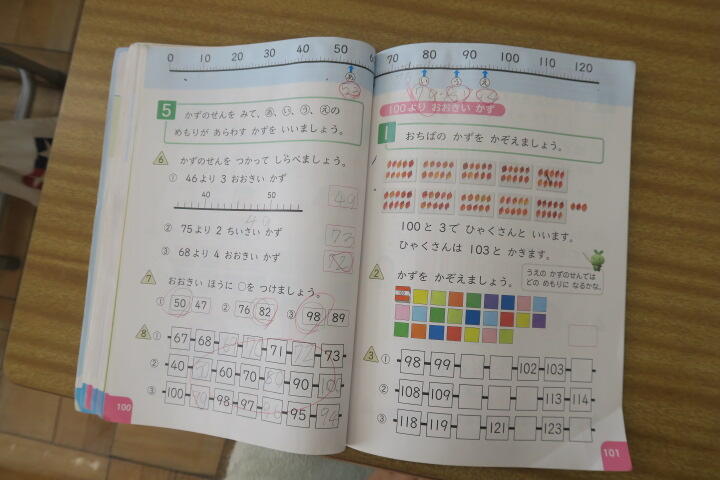 0 10 20 30 40 50
あ
52
5 かずのせんを みて、あ、い、う、えの
めもりが あらわす かずを いいましょう。
6 かずのせんを つかって しらべましょう。
① 46より 3 おおきい かず
40 50
49
② 75より 2 ちいさい かず
73
③ 68より 4 おおきい かず
72
7 おおきい ほうに ○を つけましょう。
① 50 47 ② 76 82 ③ 98 89
8 ① 67 68 69 70 71 72 73
② 40 50 60 70 80 90 100
③ 100 99 98 97 96 95 94
100
70 80 90 100 110 120
い う え
100より おおきい かず
1 おちばの かずを かぞえましょう。
100と 3で ひゃくさんと いいます。
ひゃくさんは 103と かきます。
うえの かずのせんでは
どの めもりに なるかな。
2 かずを かぞえましょう。
3 ① 98 99 102 103
② 108 109 113 114
③ 118 119 121 123
101